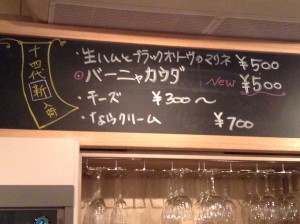 十四代新入荷
・生ハムとブラックオリーヴのマリネ ¥500
・バーニャカウダ New ¥500
・チーズ ¥300～
・ならクリーム ¥700